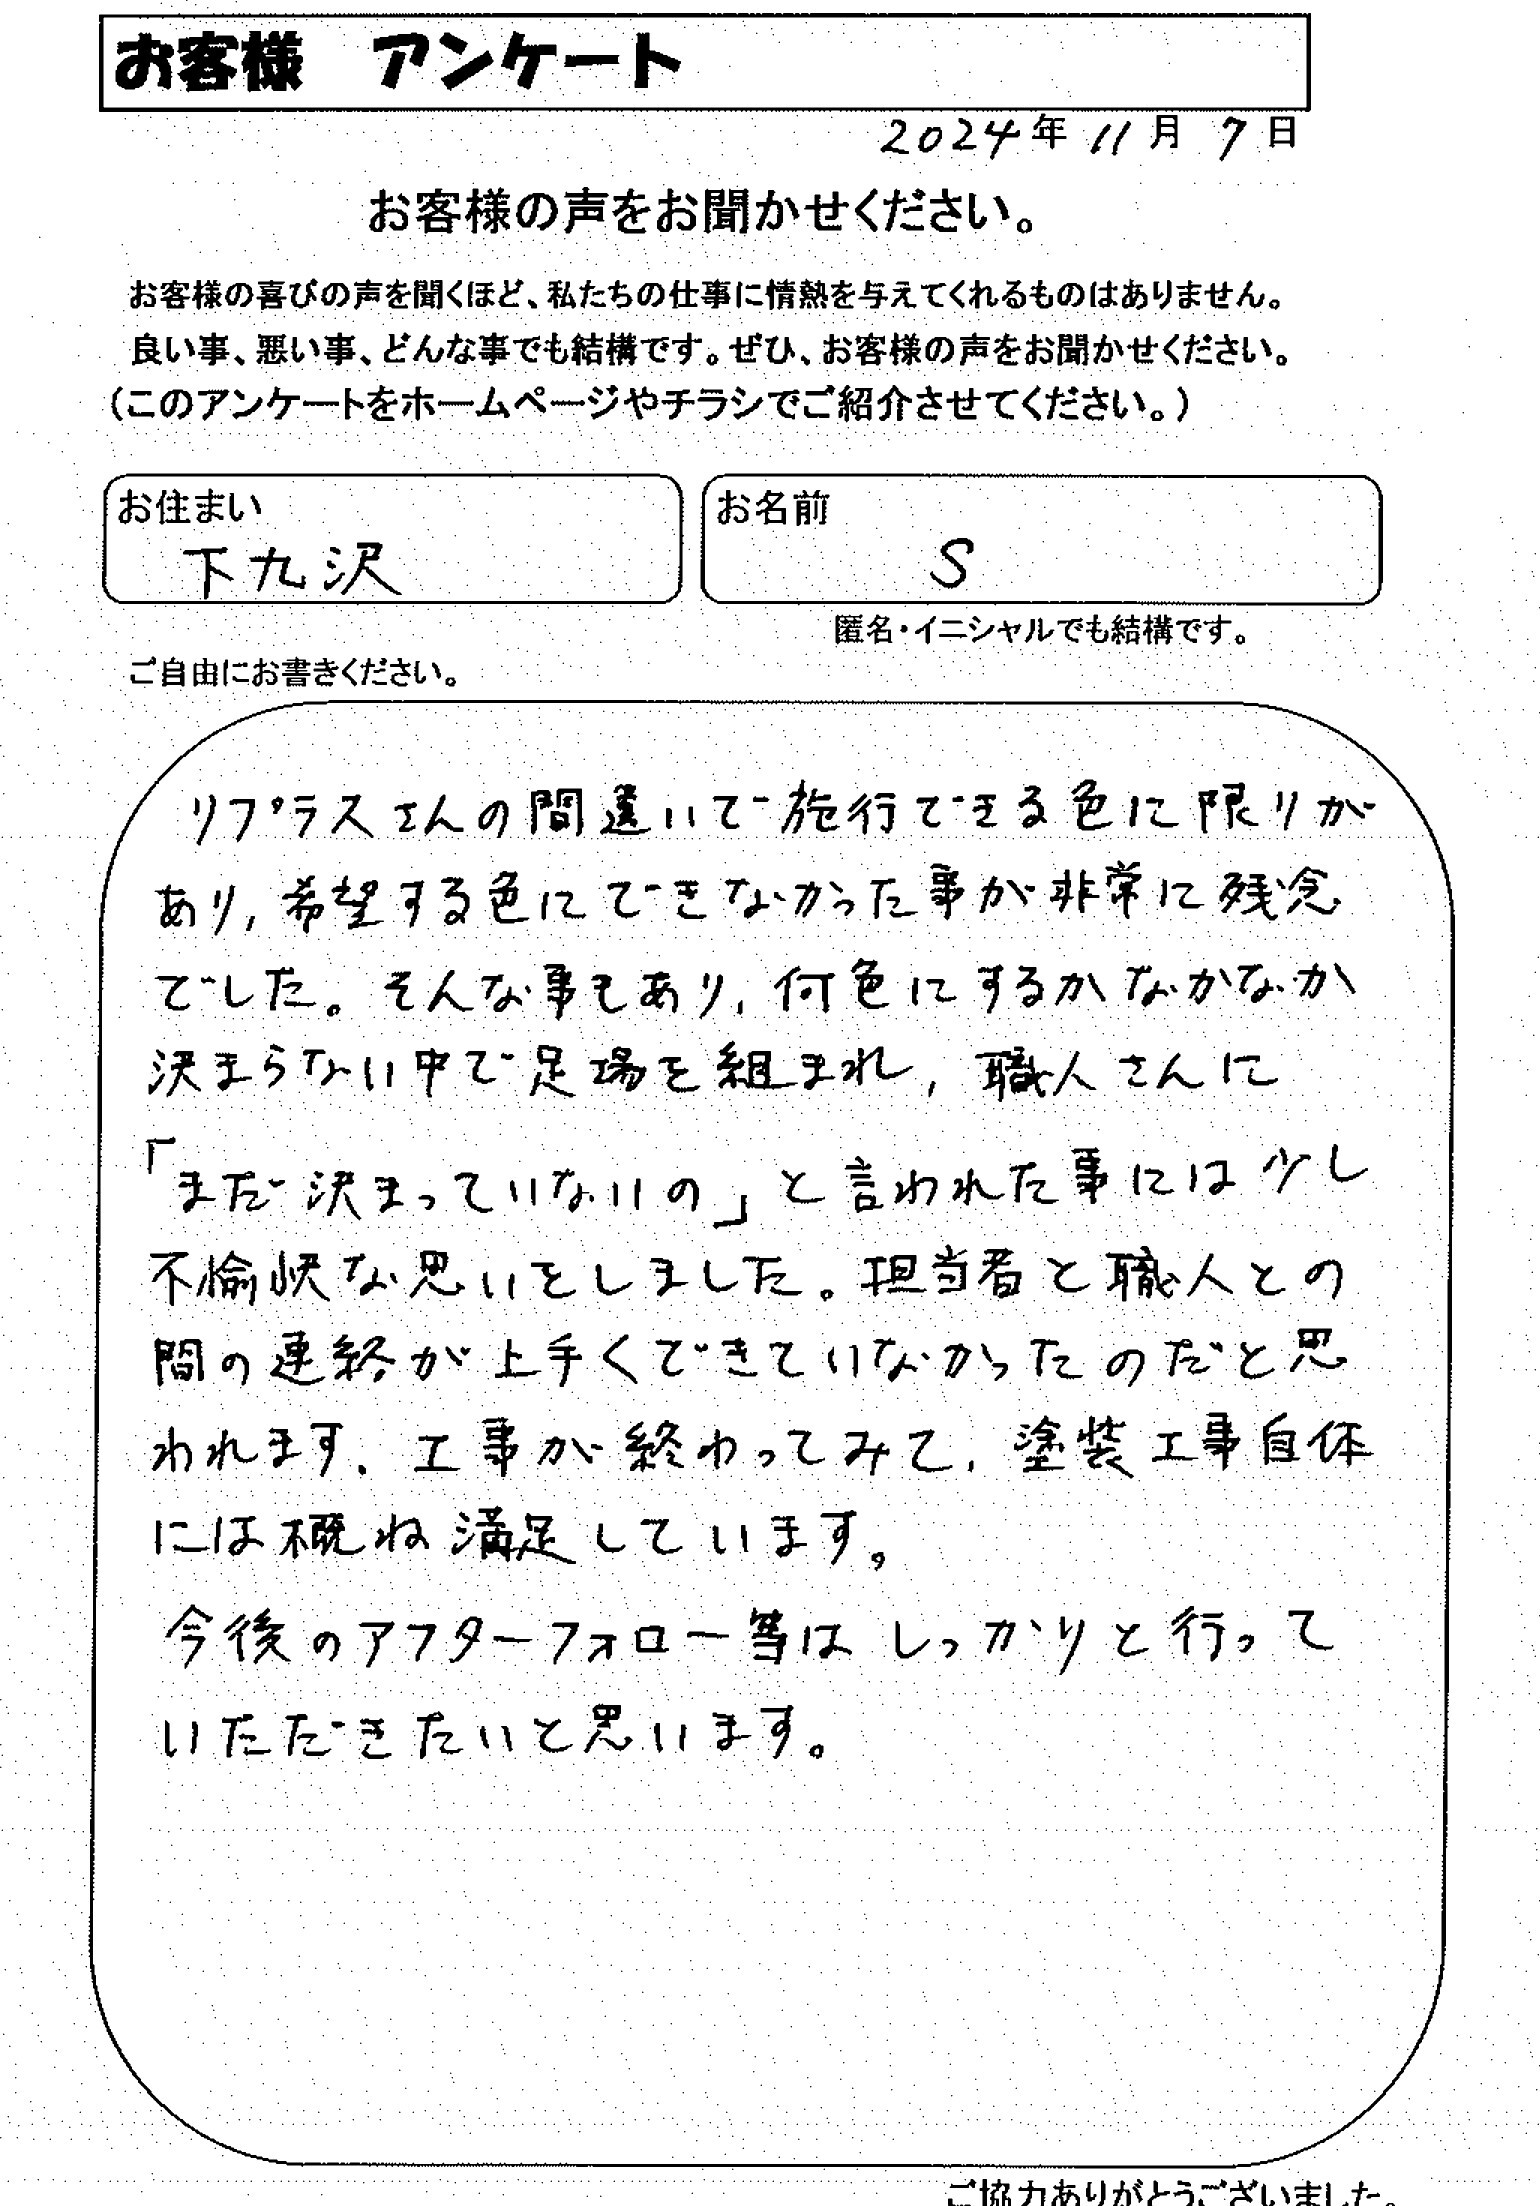 お客様 アンケート
2024年 11月 7日
お客様の声をお聞かせください。
お客様の喜びの声を聞くほど、私たちの仕事に情熱を与えてくれるものはありません。
良い事、悪い事、どんな事でも結構です。ぜひ、お客様の声をお聞かせください。
（このアンケートをホームページやチラシでご紹介させてください。）
お住まい
下九沢
お名前
S
匿名・イニシャルでも結構です。
ご自由にお書きください。
リプラスさんの間違いで施行できる色に限りが
あり,希望する色にできなかった事が非常に残念
でした。そんな事もあり,何色にするかなかなか
決まらない中で足場を組まれ,職人さんに
「まだ決まっていないの」と言われた事には少し
不愉快な思いをしました。担当者と職人との
間の連絡が上手くできていなかったのだと思
われます.工事が終わってみて,塗装工事自体
には概ね満足しています。
今後のアフターフォロー等はしっかりと行って
いただきたいと思います。
ご協力ありがとうございました。